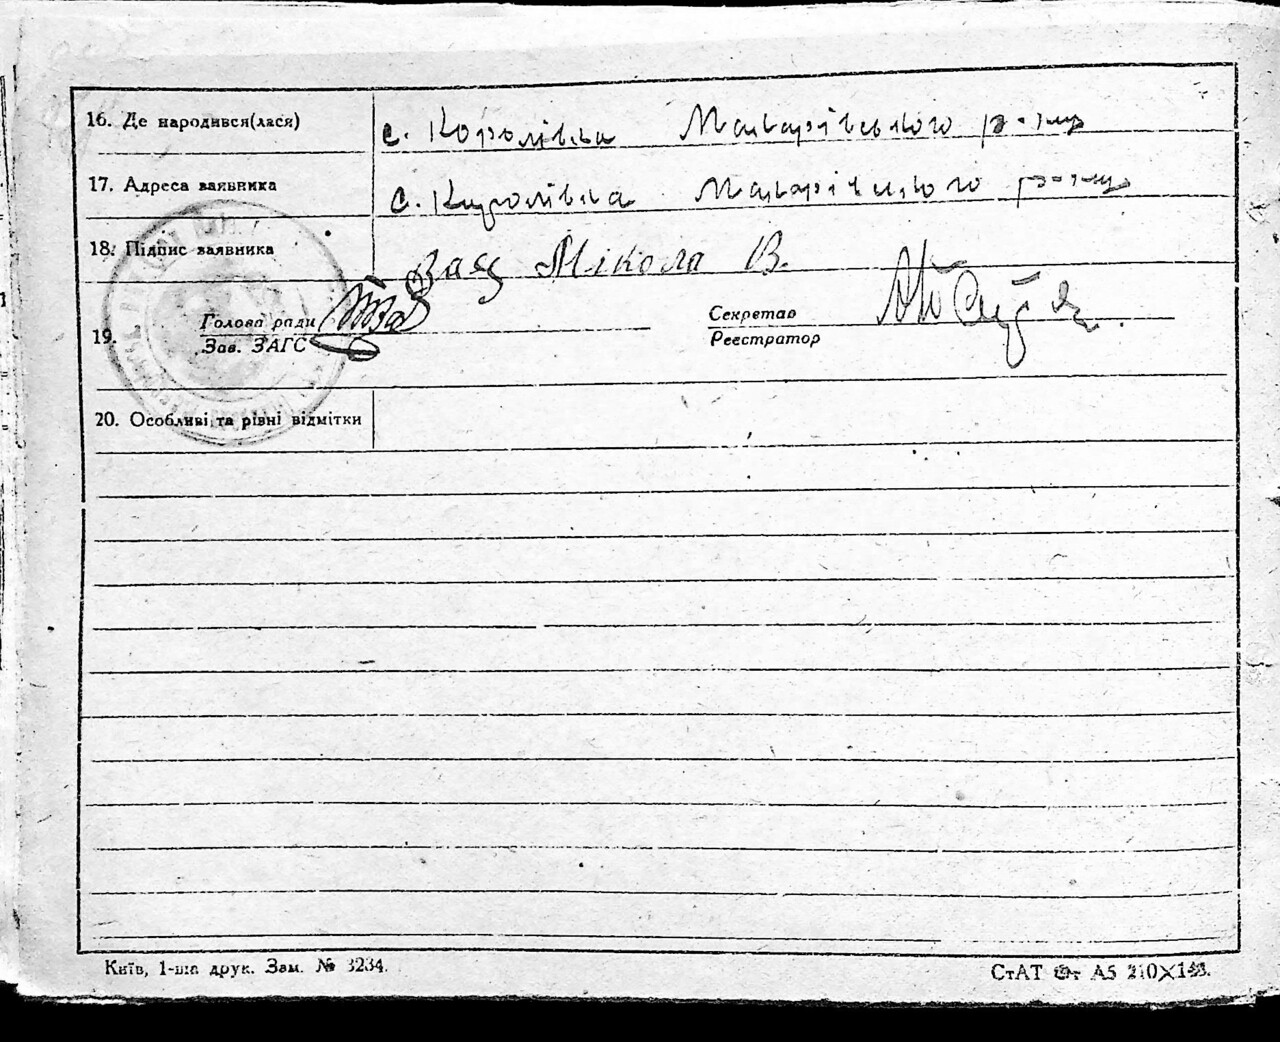 16. Де народився(лася) с. Королівка Макарівського р-ну
17. Адреса заявника с. Королівка Макарівського р-ну
18. Підпис заявника Заяц Мікола В.
Голова ради Секретар
19.
Зав. ЗАГС Реєстратор
20. Особливі та рівні відмітки
Київ, 1-ша друк. Зам. № 3234. СтАТ А5 210×148.